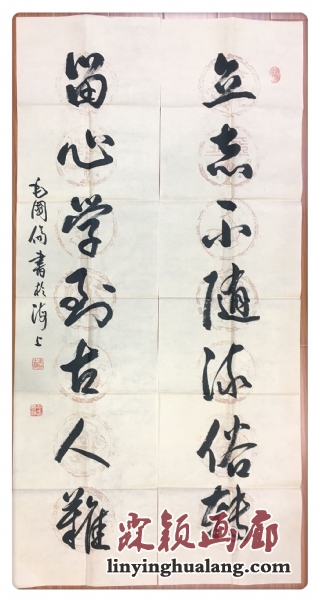 立志不随流俗转
留心学到古人難
毛國倫書於海上
霖颖画廊
linyinghualang.com